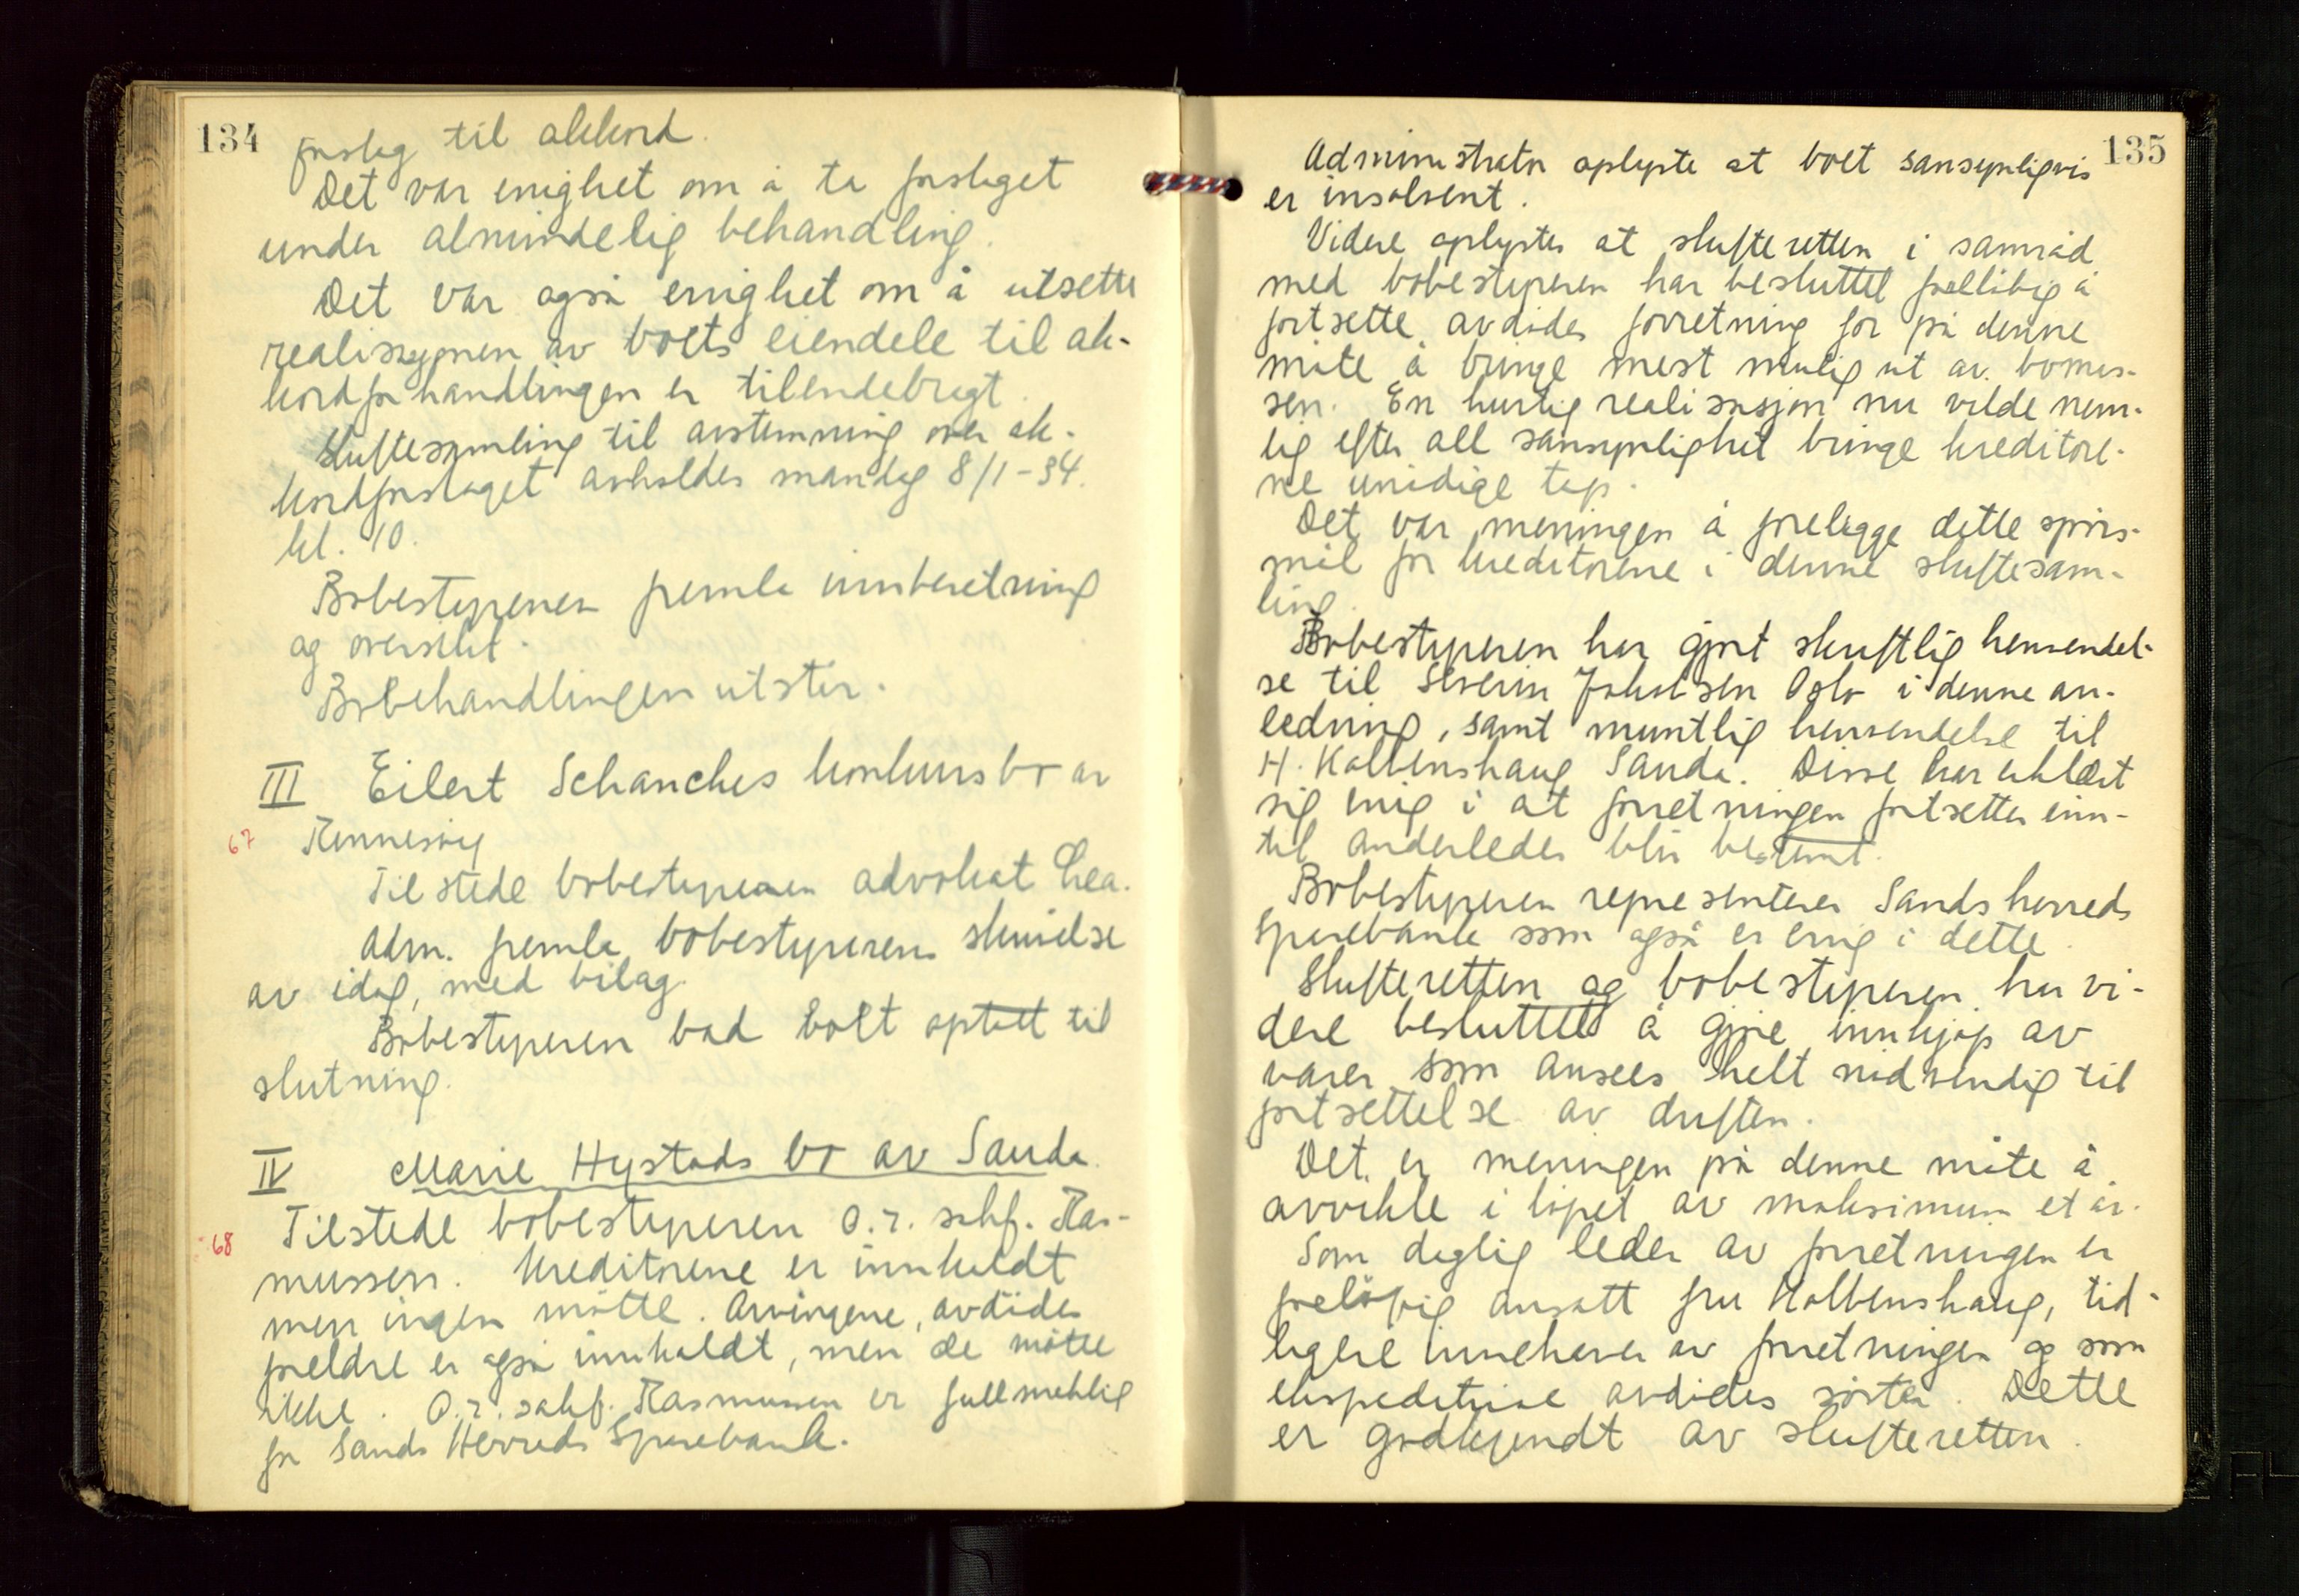 134
forslag til akkord.
Det var enighet om å ta forslaget
under almindelig behandling.
Det var også enighet om å utsette
realisasjonen av boets eiendele til ak-
kordforhandlingen er tilendebragt.
Skiftesamling til avstemning over ak-
kordforslaget avholdes mandag 8/1-34.
kl. 10.
Bobestyreren fremla innberetning
og oversikt.
Bobehandlingen utstår.
III Eilert Schanches konkursbo av
67 Rennesøy
Tilstede bobestyreren advokat Lea.
Adm. fremla bobestyrerens skrivelse
av idag, med bilag.
Bobestyreren bad boet optatt til
slutning.
IV Marie Hystads bo av Sauda
68 Tilstede bobestyreren o.r. sakf. Ras-
mussen. Kreditorene er innkaldt
men ingen møtte. Arvingene, avdødes
foreldre er også innkaldt, men de møtte
ikke. O.r. sakf. Rasmussen er fullmektig
for Sands Herreds Sparebank.
135
Administrator oplyste at boet sansynligvis
er insolvent.
Videre oplystes at skifteretten i samråd
med bobestyreren har besluttet foreløbig å
fortsette avdødes forretning for på denne
måte å bringe mest mulig ut av bomas-
sen. En hurtig realisasjon nu vilde nem-
lig efter all sansynlighet bringe kreditore-
ne unødige tap.
Det var meningen å forelegge dette spørs-
mål for kreditorene i denne skiftesam-
ling.
Bobestyreren har gjort skriftlig henvendel-
se til Severin Jakobsen Oslo i denne an-
ledning, samt muntlig henvendelse til
H. Kolbenshaug Sauda. Disse har erklært
sig enig i at forretningen fortsettes inn-
til anderledes blir bestemt.
Bobestyreren representerer Sands herreds
Sparebank som også er enig i dette.
Skifteretten og bobestyreren har vi-
dere besluttet å gjøre innkjøp av
varer som ansees helt nødvendig til
fortsettelse av driften.
Det er meningen på denne måte å
avvikle i løpet av maksimum et år.
Som daglig leder av forretningen er
foreløpig ansatt fru Kolbenshaug, tid-
ligere innehaver av forretningen og som
ekspeditrise avdødes søster. Dette
er godkjendt av skifteretten.